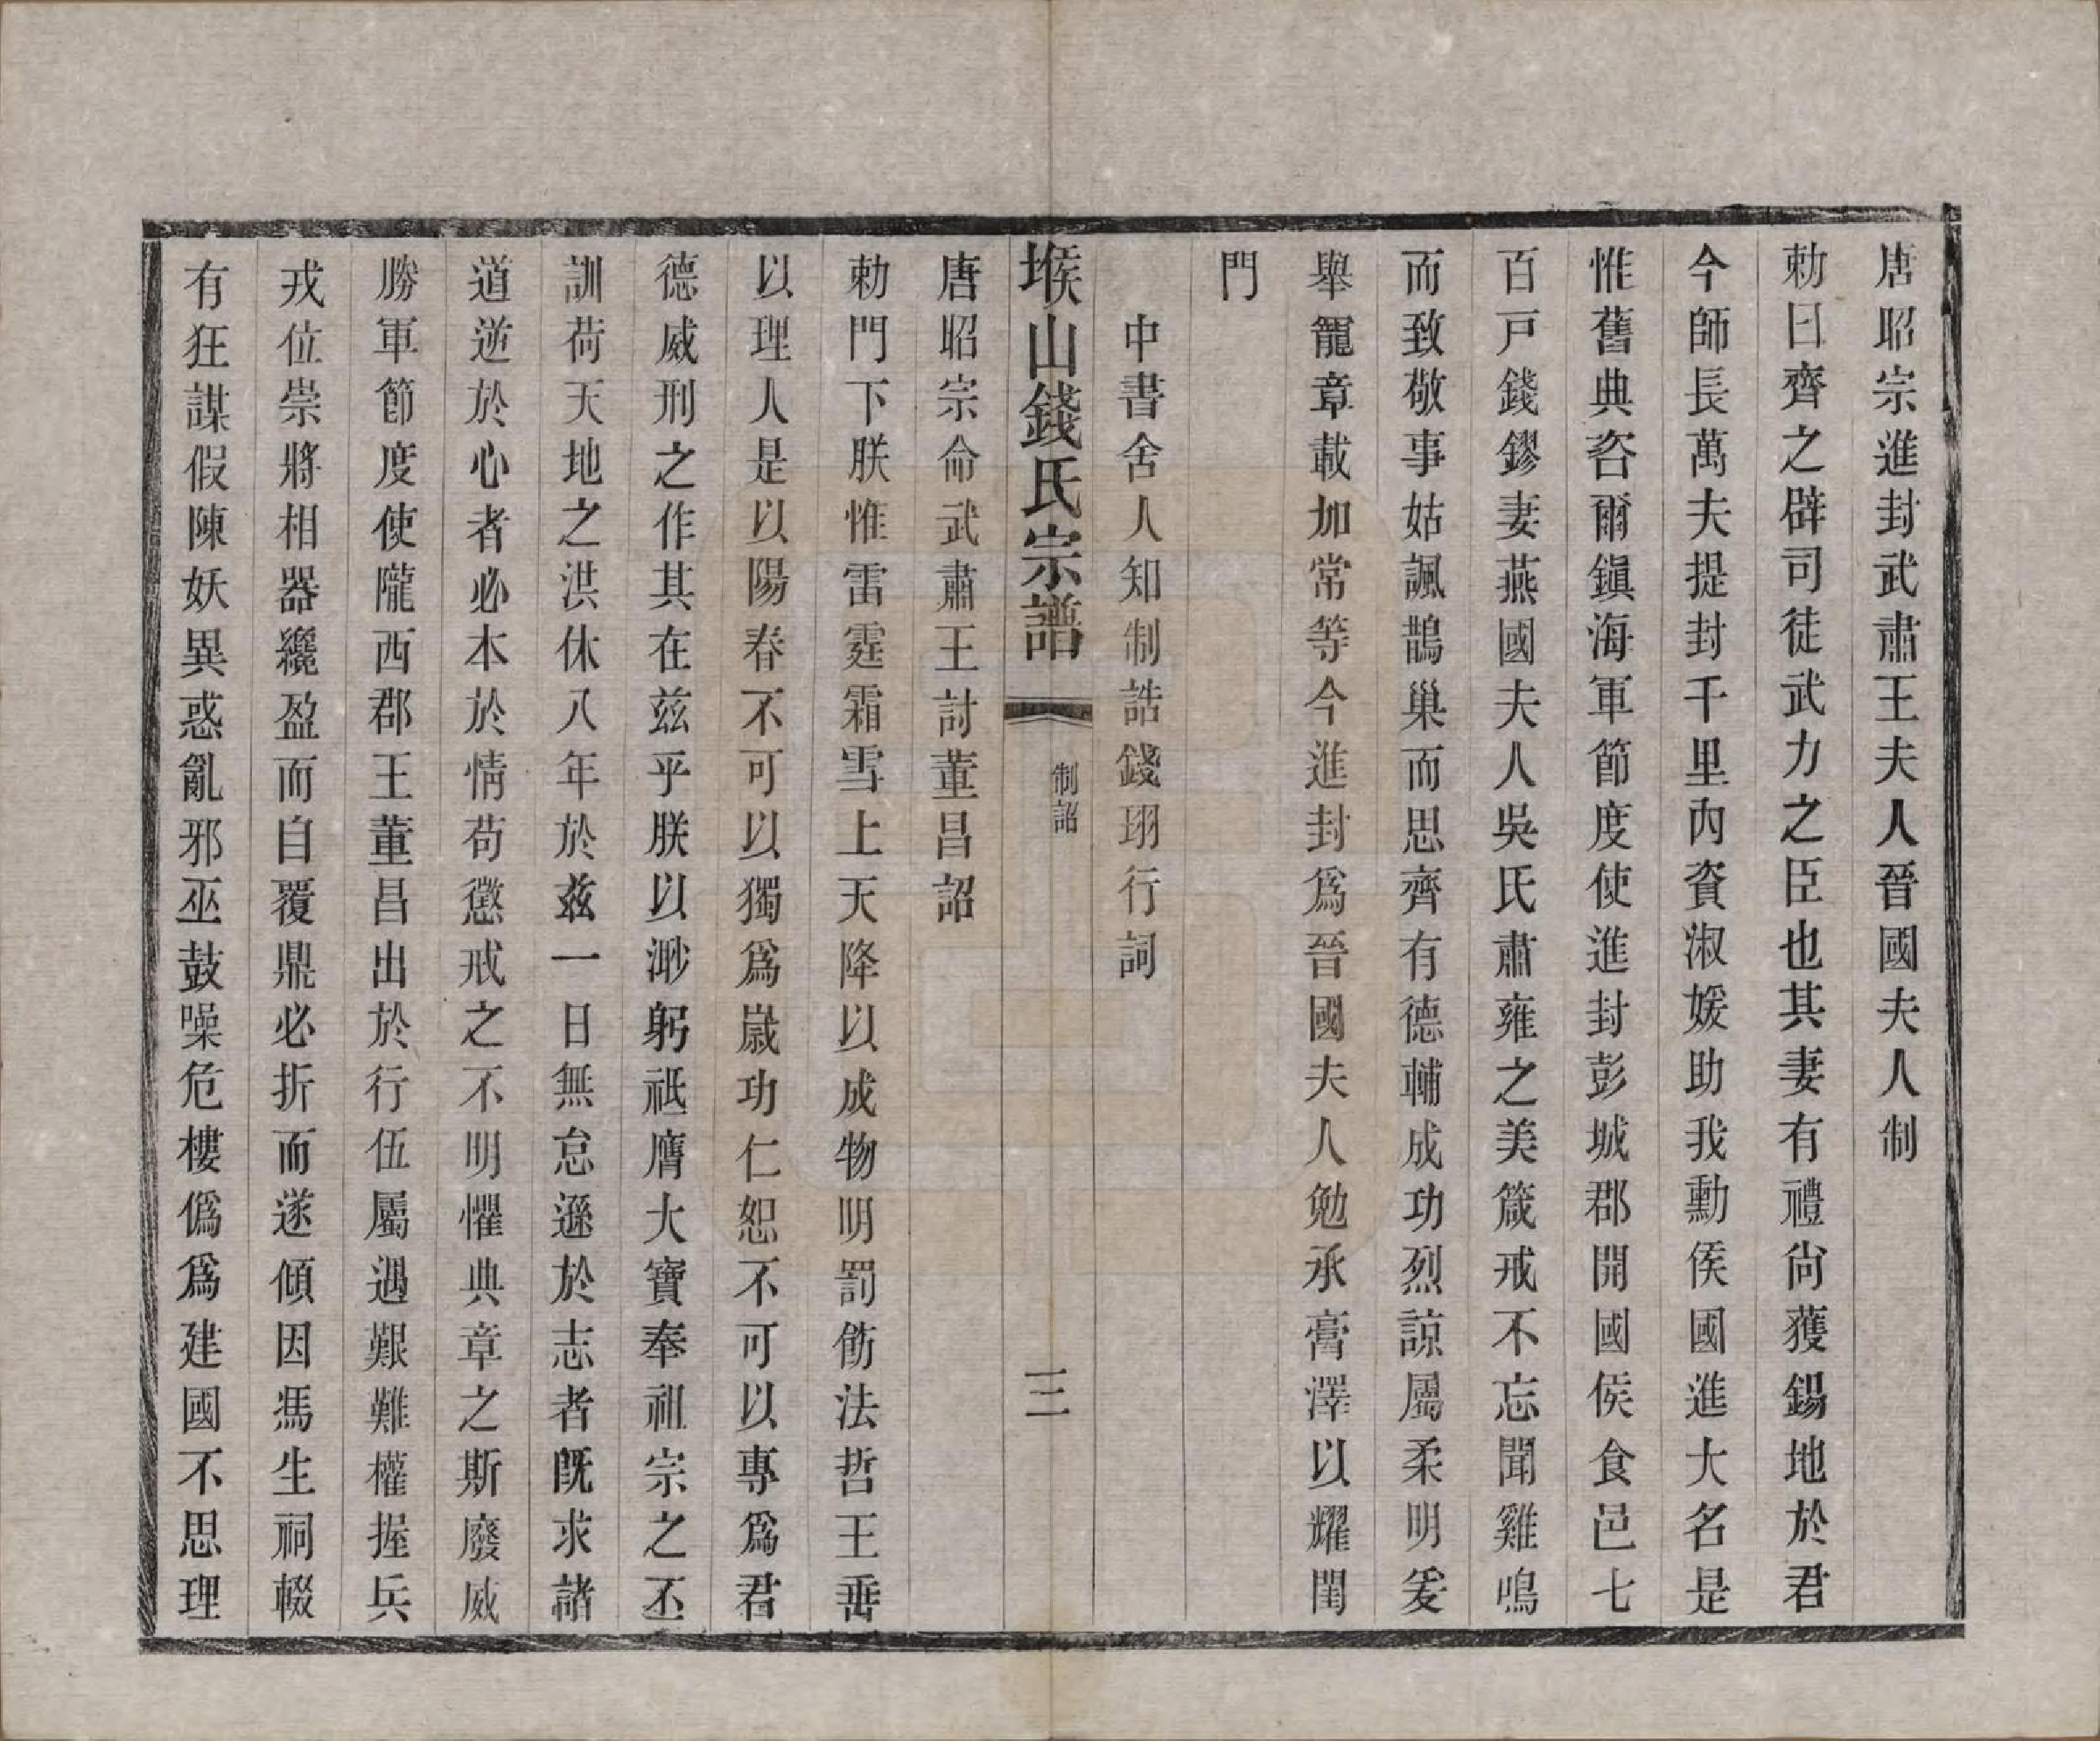 唐昭宗進封武肅王夫人晉國夫人制
勅曰齊之辟司徒武力之臣也其妻有禮尙獲錫地於君
今師長萬夫提封千里內資淑媛助我勳侯國進大名是
惟舊典咨爾鎭海軍節度使進封彭城郡開國侯食邑七
百戸錢鏐妻燕國夫人吳氏肅雍之美箴戒不忘聞雞鳴
而致敬事姑諷鵲巢而思齊有德輔成功烈諒屬柔明爰
舉寵章載加常等今進封爲晉國夫人勉承膏澤以耀閨
門
中書舍人知制誥錢珝行詞
堠山錢氏宗譜
制詔
三
唐昭宗命武肅王討董昌詔
勅門下朕惟雷霆霜雪上天降以成物明罰飭法哲王垂
以理人是以陽春不可以獨爲歲功仁恕不可以專爲君
德威刑之作其在兹乎朕以渺躬祗膺大寶奉祖宗之丕
訓荷天地之洪休八年於兹一日無怠遜於志者旣求諸
道逆於心者必本於情苟懲戒之不明懼典章之斯廢威
勝軍節度使隴西郡王董昌出於行伍屬遇艱難權握兵
戎位崇將相器纔盈而自覆鼎必折而遂傾因馮生祠輟
有狂謀假陳妖異惑亂邪巫鼓噪危樓僞爲建國不思理